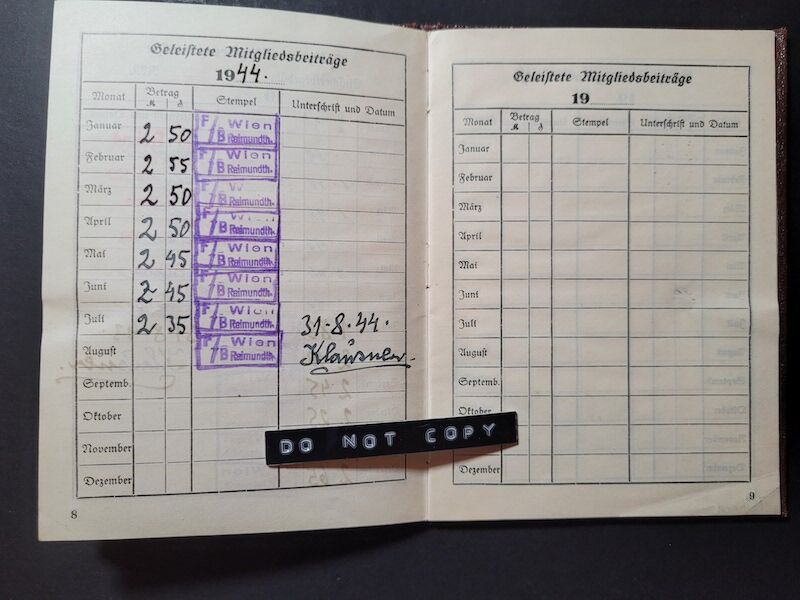 Geleistete Mitgliedsbeiträge
1944.
Monat Betrag Stempel Unterschrift und Datum
ℳ ₰
Januar 2 50 F/B Wien Raimundth.
Februar 2 55 F/B Wien Raimundth.
März 2 50 F/B W Raimundth.
April 2 50 F/B Wien Raimundth.
Mai 2 45 F/B Wien Raimundth.
Juni 2 45 F/B Wien Raimundth.
Juli 2 35 F/B Wien Raimundth. 31.8.44.
August F/B Wien Raimundth. Klausner
Septemb.
Oktober
November
Dezember
8
Geleistete Mitgliedsbeiträge
19
Monat Betrag Stempel Unterschrift und Datum
ℳ ₰
Januar
Februar
März
April
Mai
Juni
Juli
August
Septemb.
Oktober
Dezember
9
DO NOT COPY